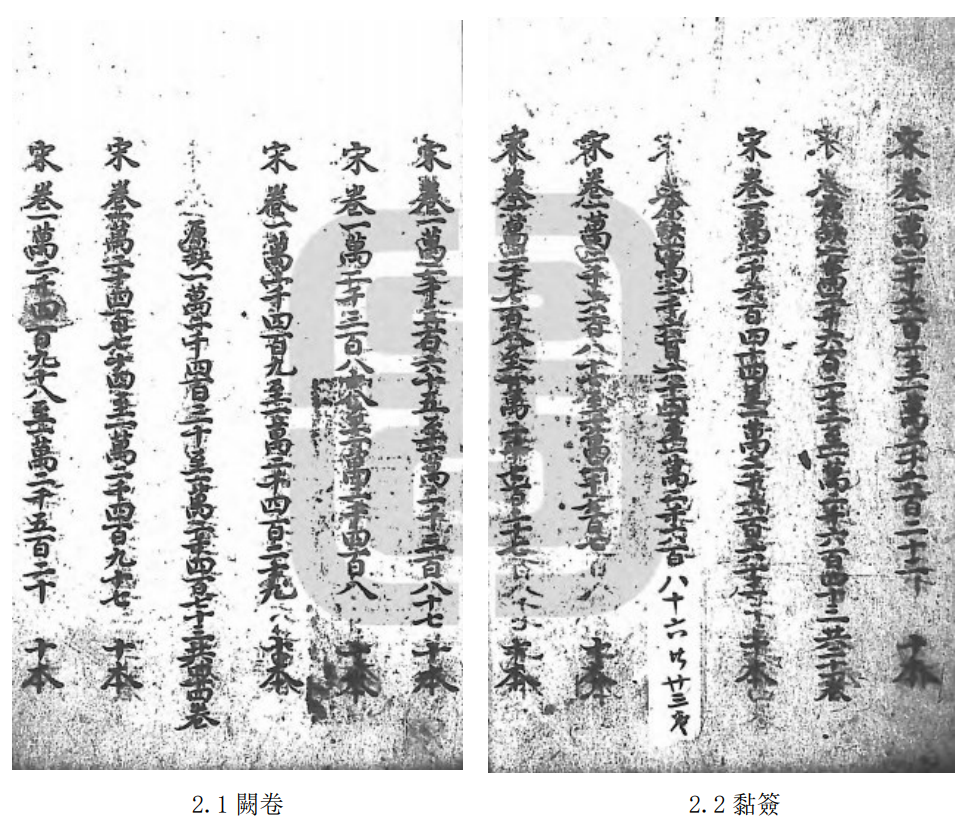 宋 卷一萬二千三百六十五至一萬二千三百八十七 十本
宋 卷一萬二千三百八十八至一萬二千四百八 十本
宋 卷一萬二千四百九至一萬二千四百二十九 十本
原缺一萬二千四百三十至一萬二千四百七十三共四十四卷
宋 卷一萬二千四百七十四至一萬二千四百九十七 十本
宋 卷一萬二千四百九十八至一萬二千五百二十 十本
2.1 闕卷
宋 卷一萬二千六百 至一萬二千六百二十 十本
宋 卷原缺一萬二千六百二十三至一萬二千六百四十三共二十一卷
宋 卷一萬二千六百四十四至一萬二千六百六十三 十本
原缺一萬二千六百六十四至一萬二千六百八十六 共廿三卷
宋 卷一萬二千六百八十七至一萬二千七百七 十本
宋 卷一萬二千七百八至一萬二千七百二十七 十本
2.2 黏簽